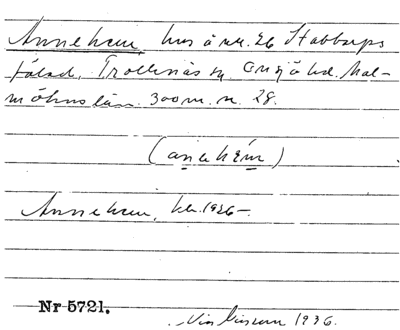 Annehem, hus å nr. 26 Stabbarps
fälad, Trollenäs sn Onsjö hd. Mal-
möhus län. 300 m. n. 28.
(anehém)
Annehem, kl. 1926-.
Nr 5721.
1936.